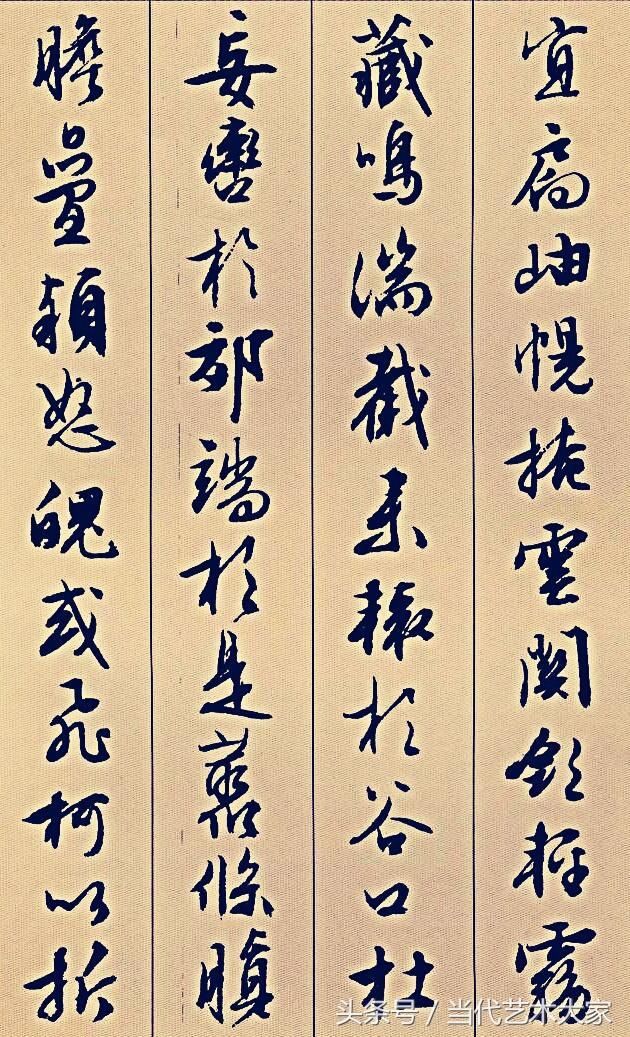 宜扃岫幌掩雲關斂輕霧
藏鳴湍截来轅於谷口杜
妄轡於郊端於是叢條瞋
膽疊穎怒魄或飛柯以折
头条号 / 当代艺术大家